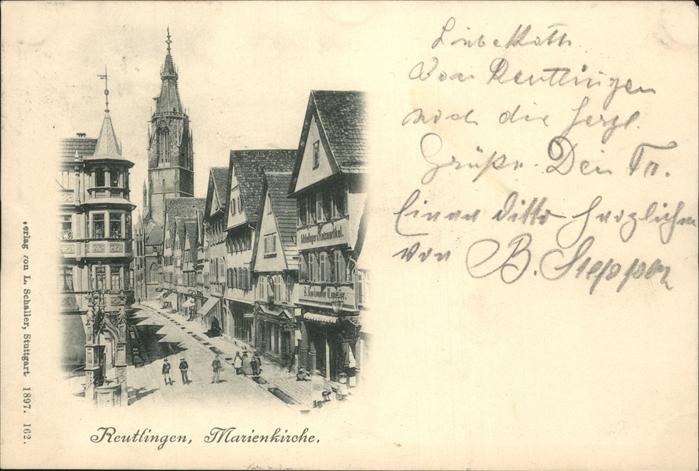 Liebe Käth.
Von Reutlingen
noch die herzl.
Grüße. Dein Fr.
Einen ditto herzlichen
von B. Stepper
Verlag von L. Schaller, Stuttgart 1897. 162.
Reutlingen, Marienkirche.